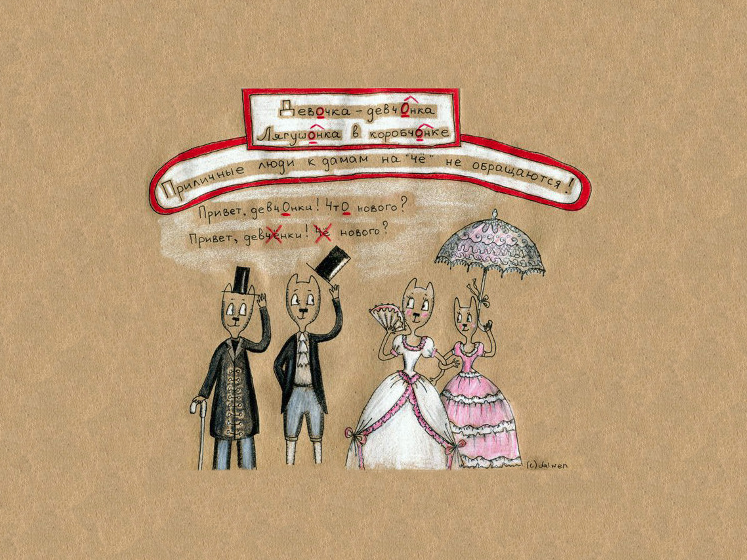 Девочка - девчонка
Лягушонка в коробчонке
Приличные люди к дамам на "чё" не обращаются!
Привет, девчОнки! ЧтО нового?
Привет, девчёнки! Чё нового?